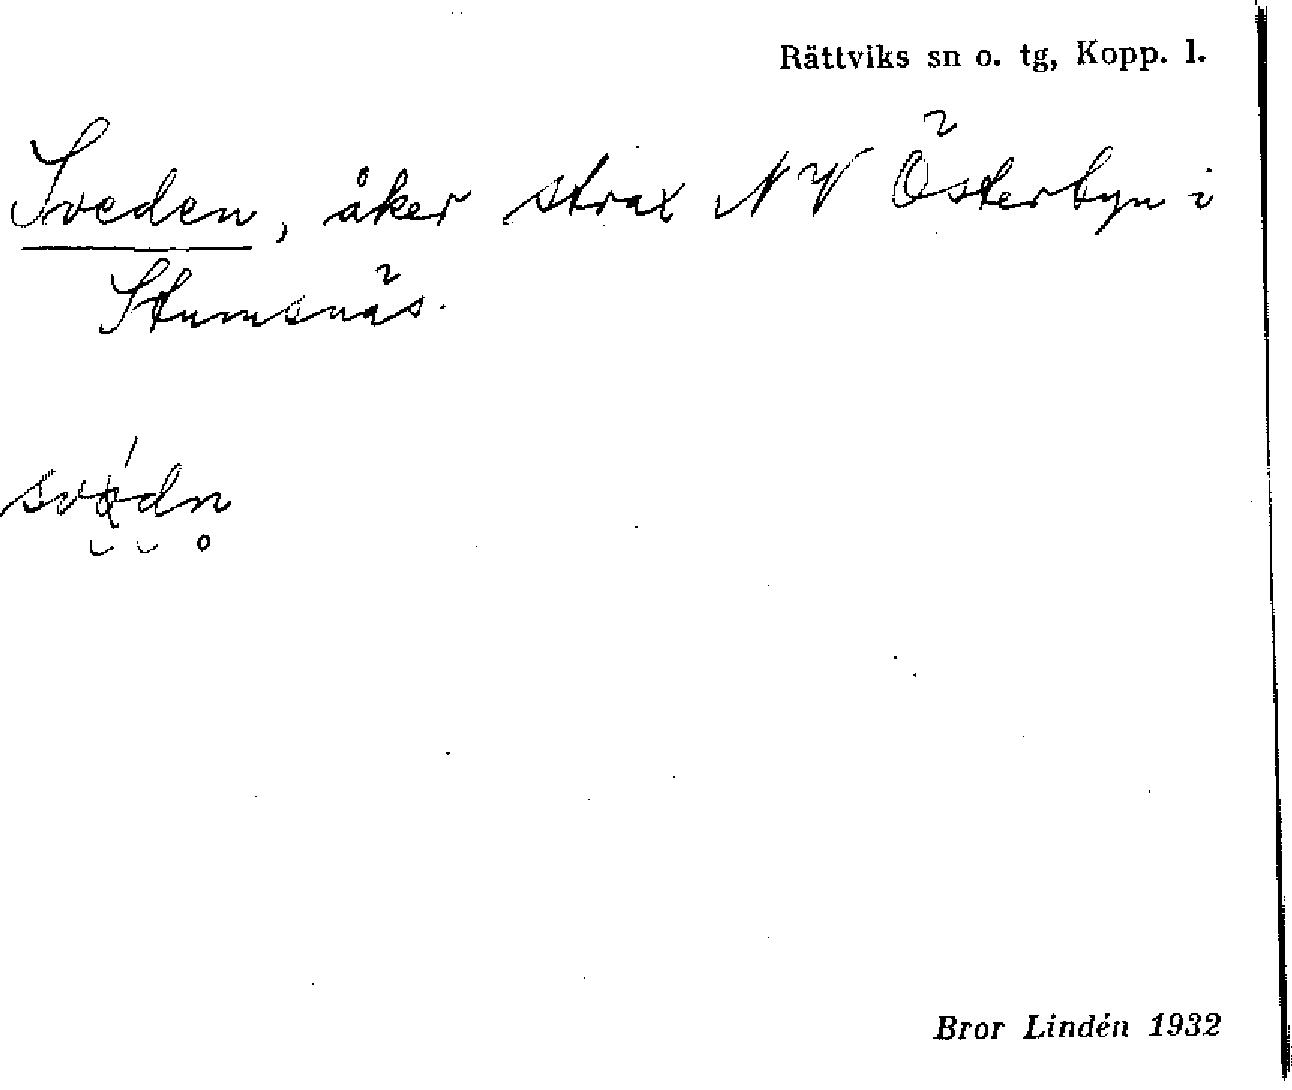 Rättviks sn o. tg, Kopp. l.
Sveden, åker strax NV Österbyn i
Stumsnäs.
Bror Lindén 1932